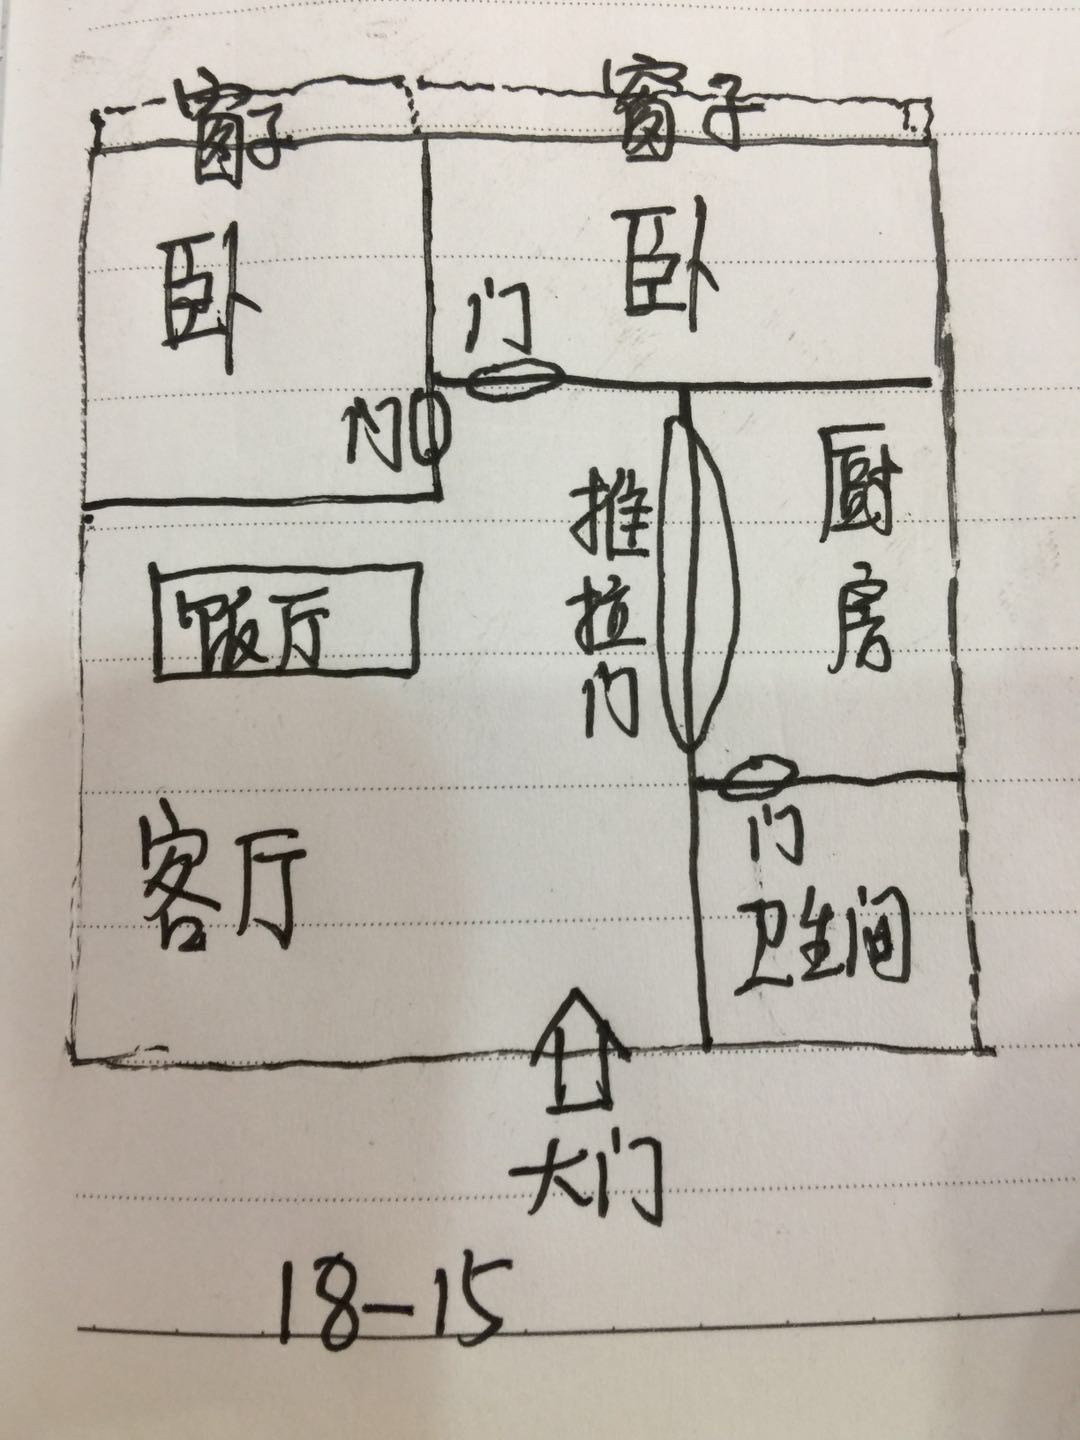 窗子
窗子
卧
卧
门
门
推拉门
厨房
饭厅
客厅
门
卫生间
大门
18-15